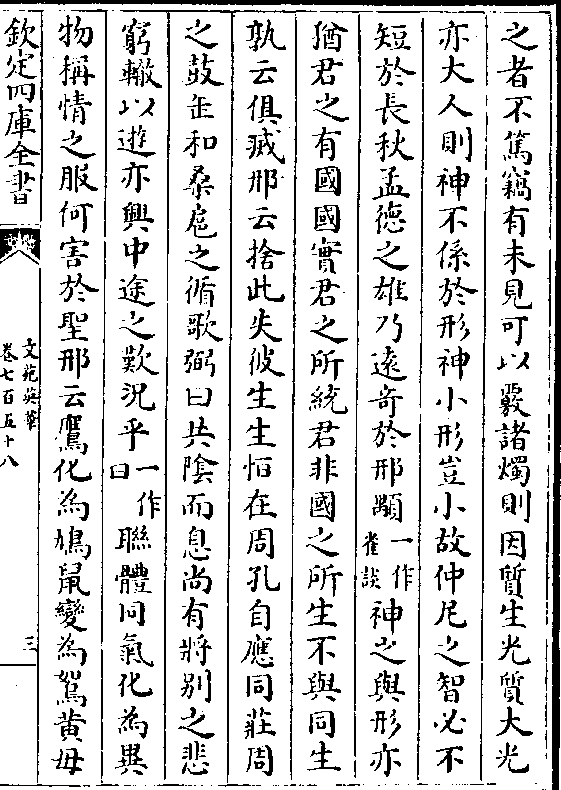 之者不篤竊有未見可以覈諸燭則因質生光質大光
亦大人則神不係於形神小形豈小故仲尼之智必不
短於長秋孟德之雄乃遠竒於邢顒一作崔談神之與形亦
猶君之有國國實君之所統君非國之所生不與同生
孰云俱㓕邢云捨此失彼生生恒在周孔自應同莊周
之鼓缶和桑扈之循歌弼曰共隂而息尚有將别之悲
窮轍以遊亦興中途之歎況乎一作曰聯體同氣化為異
物稱情之服何害於聖邢云鷹化為鳩䑕變為鴽黄母
欽定四庫全書
文苑英華
卷七百五十八
三